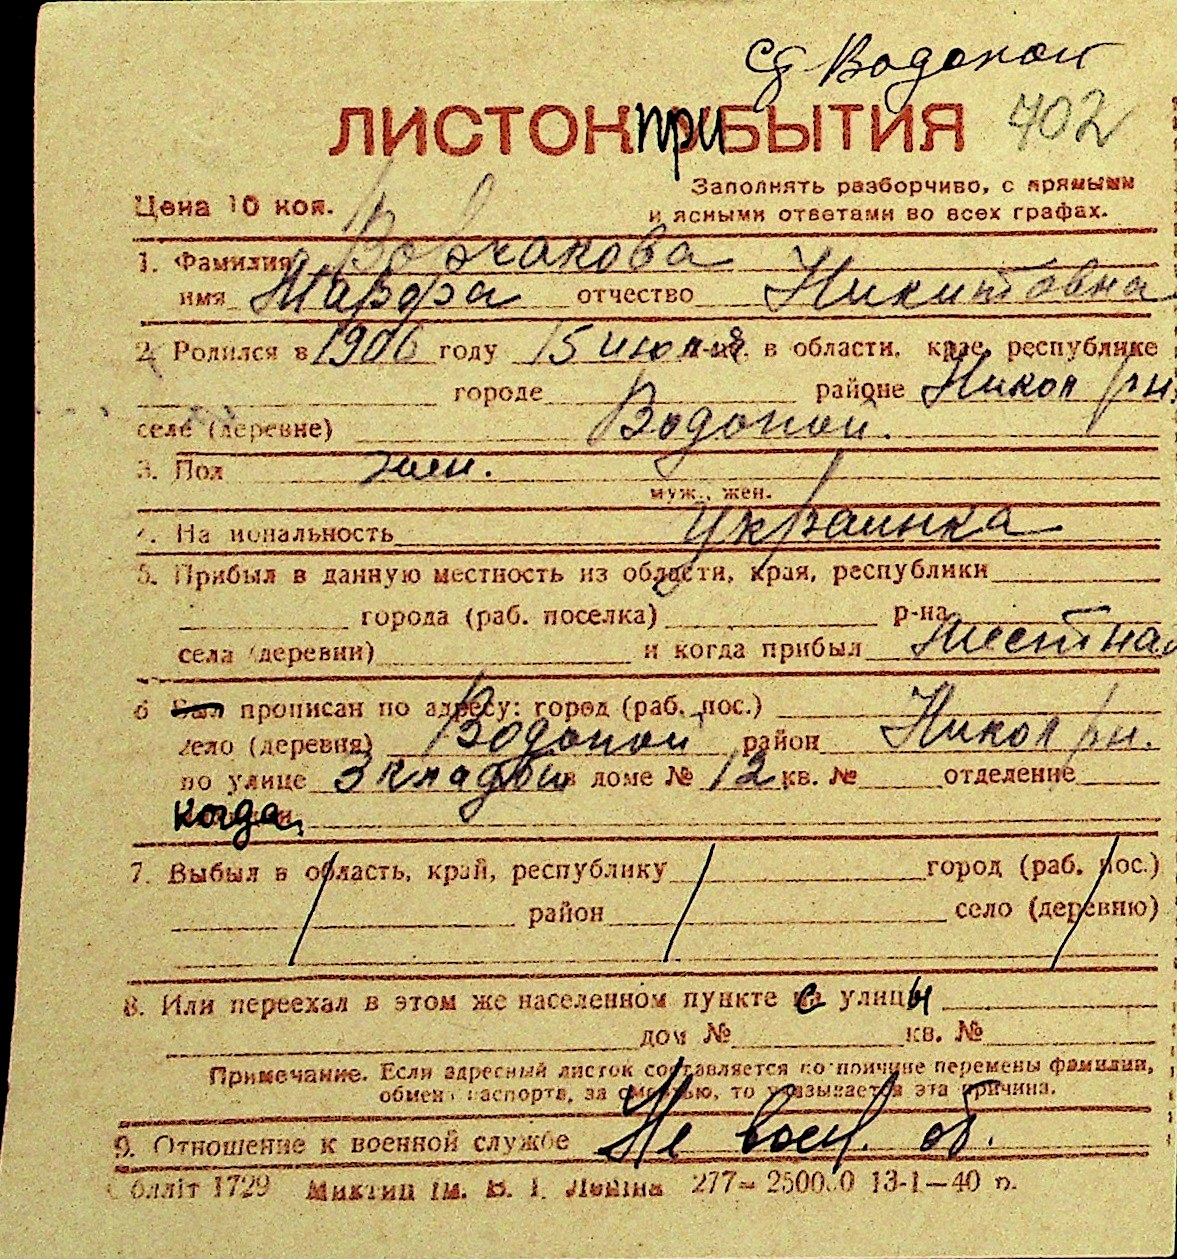 с/ Водопой
ЛИСТОК ПРИБЫТИЯ 402
Заполнять разборчиво, с прямыми
Цена 10 коп. и ясными ответами во всех графах.
1. Фамилия Вовчакова
имя Марфа отчество Никитовна
2. Родился в 1906 году 15 июля в области, крае, республике
городе районе Никол рн.
селе (деревне) Водопой.
3. Пол жен.
муж., жен.
4. Национальность украинка
5. Прибыл в данную местность из области, края, республики
города (раб. поселка) р-на
села (деревни) и когда прибыл Местная
6 Был прописан по адресу: город (раб. пос.)
село (деревня) Водопой район Никол рн.
по улице 3 кладби в доме № 12 кв. № отделение
когда
7. Выбыл в область, край, республику город (раб. пос.)
район село (деревню)
8. Или переехал в этом же населенном пункте с улицы
дом № кв. №
Примечание. Если адресный листок составляется по причине перемены фамилии,
обмена паспорта, за смертью, то указывается эта причина.
9. Отношение к военной службе Не воен. об.
Обллiт 1729 iм. В. I. Ленiна 277—250000 13-1—40 п.